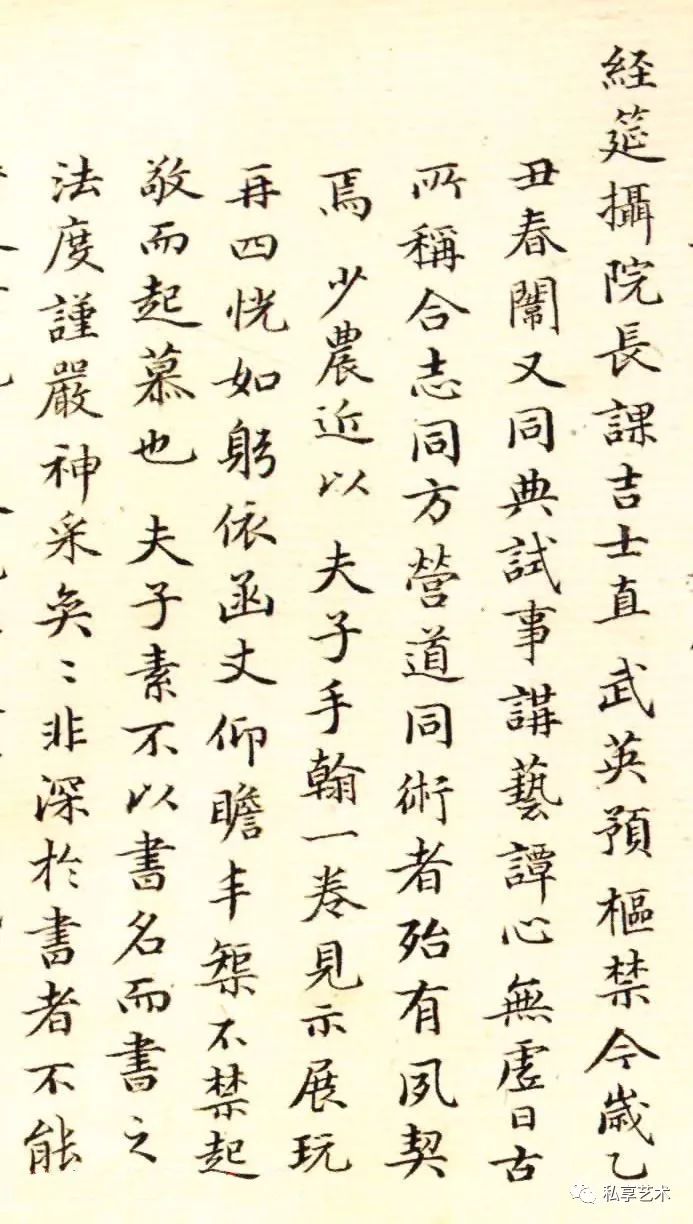 経筵攝院長課吉士直 武英預樞禁今歲乙
丑春闈又同典試事講藝譚心無虛日古
所稱合志同方營道同術者殆有夙契
焉 少農近以 夫子手翰一卷見示展玩
再四恍如躬依函丈仰瞻丰榘不禁起
敬而起慕也 夫子素不以書名而書之
法度謹嚴神采奐〻非深於書者不能
私享艺术